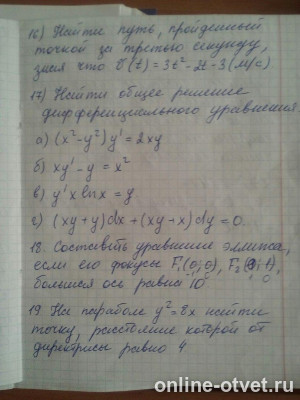 16) Найти путь, пройденный
точкой за третью секунду,
зная что V(t) = 3t² - 2t - 3 (м/с)
17) Найти общее решение
дифференциального уравнения
а) (x² - y²) y' = 2xy
б) xy' - y = x²
в) y' x ln x = y
г) (xy + y)dx + (xy + x)dy = 0
18. Составить уравнение эллипса,
если его фокусы F₁(0; 0), F₂
большая ось равна 10
19 На параболе y² = 8x найти
точку, расстояние которой от
директрисы равно 4
online-otvet.ru